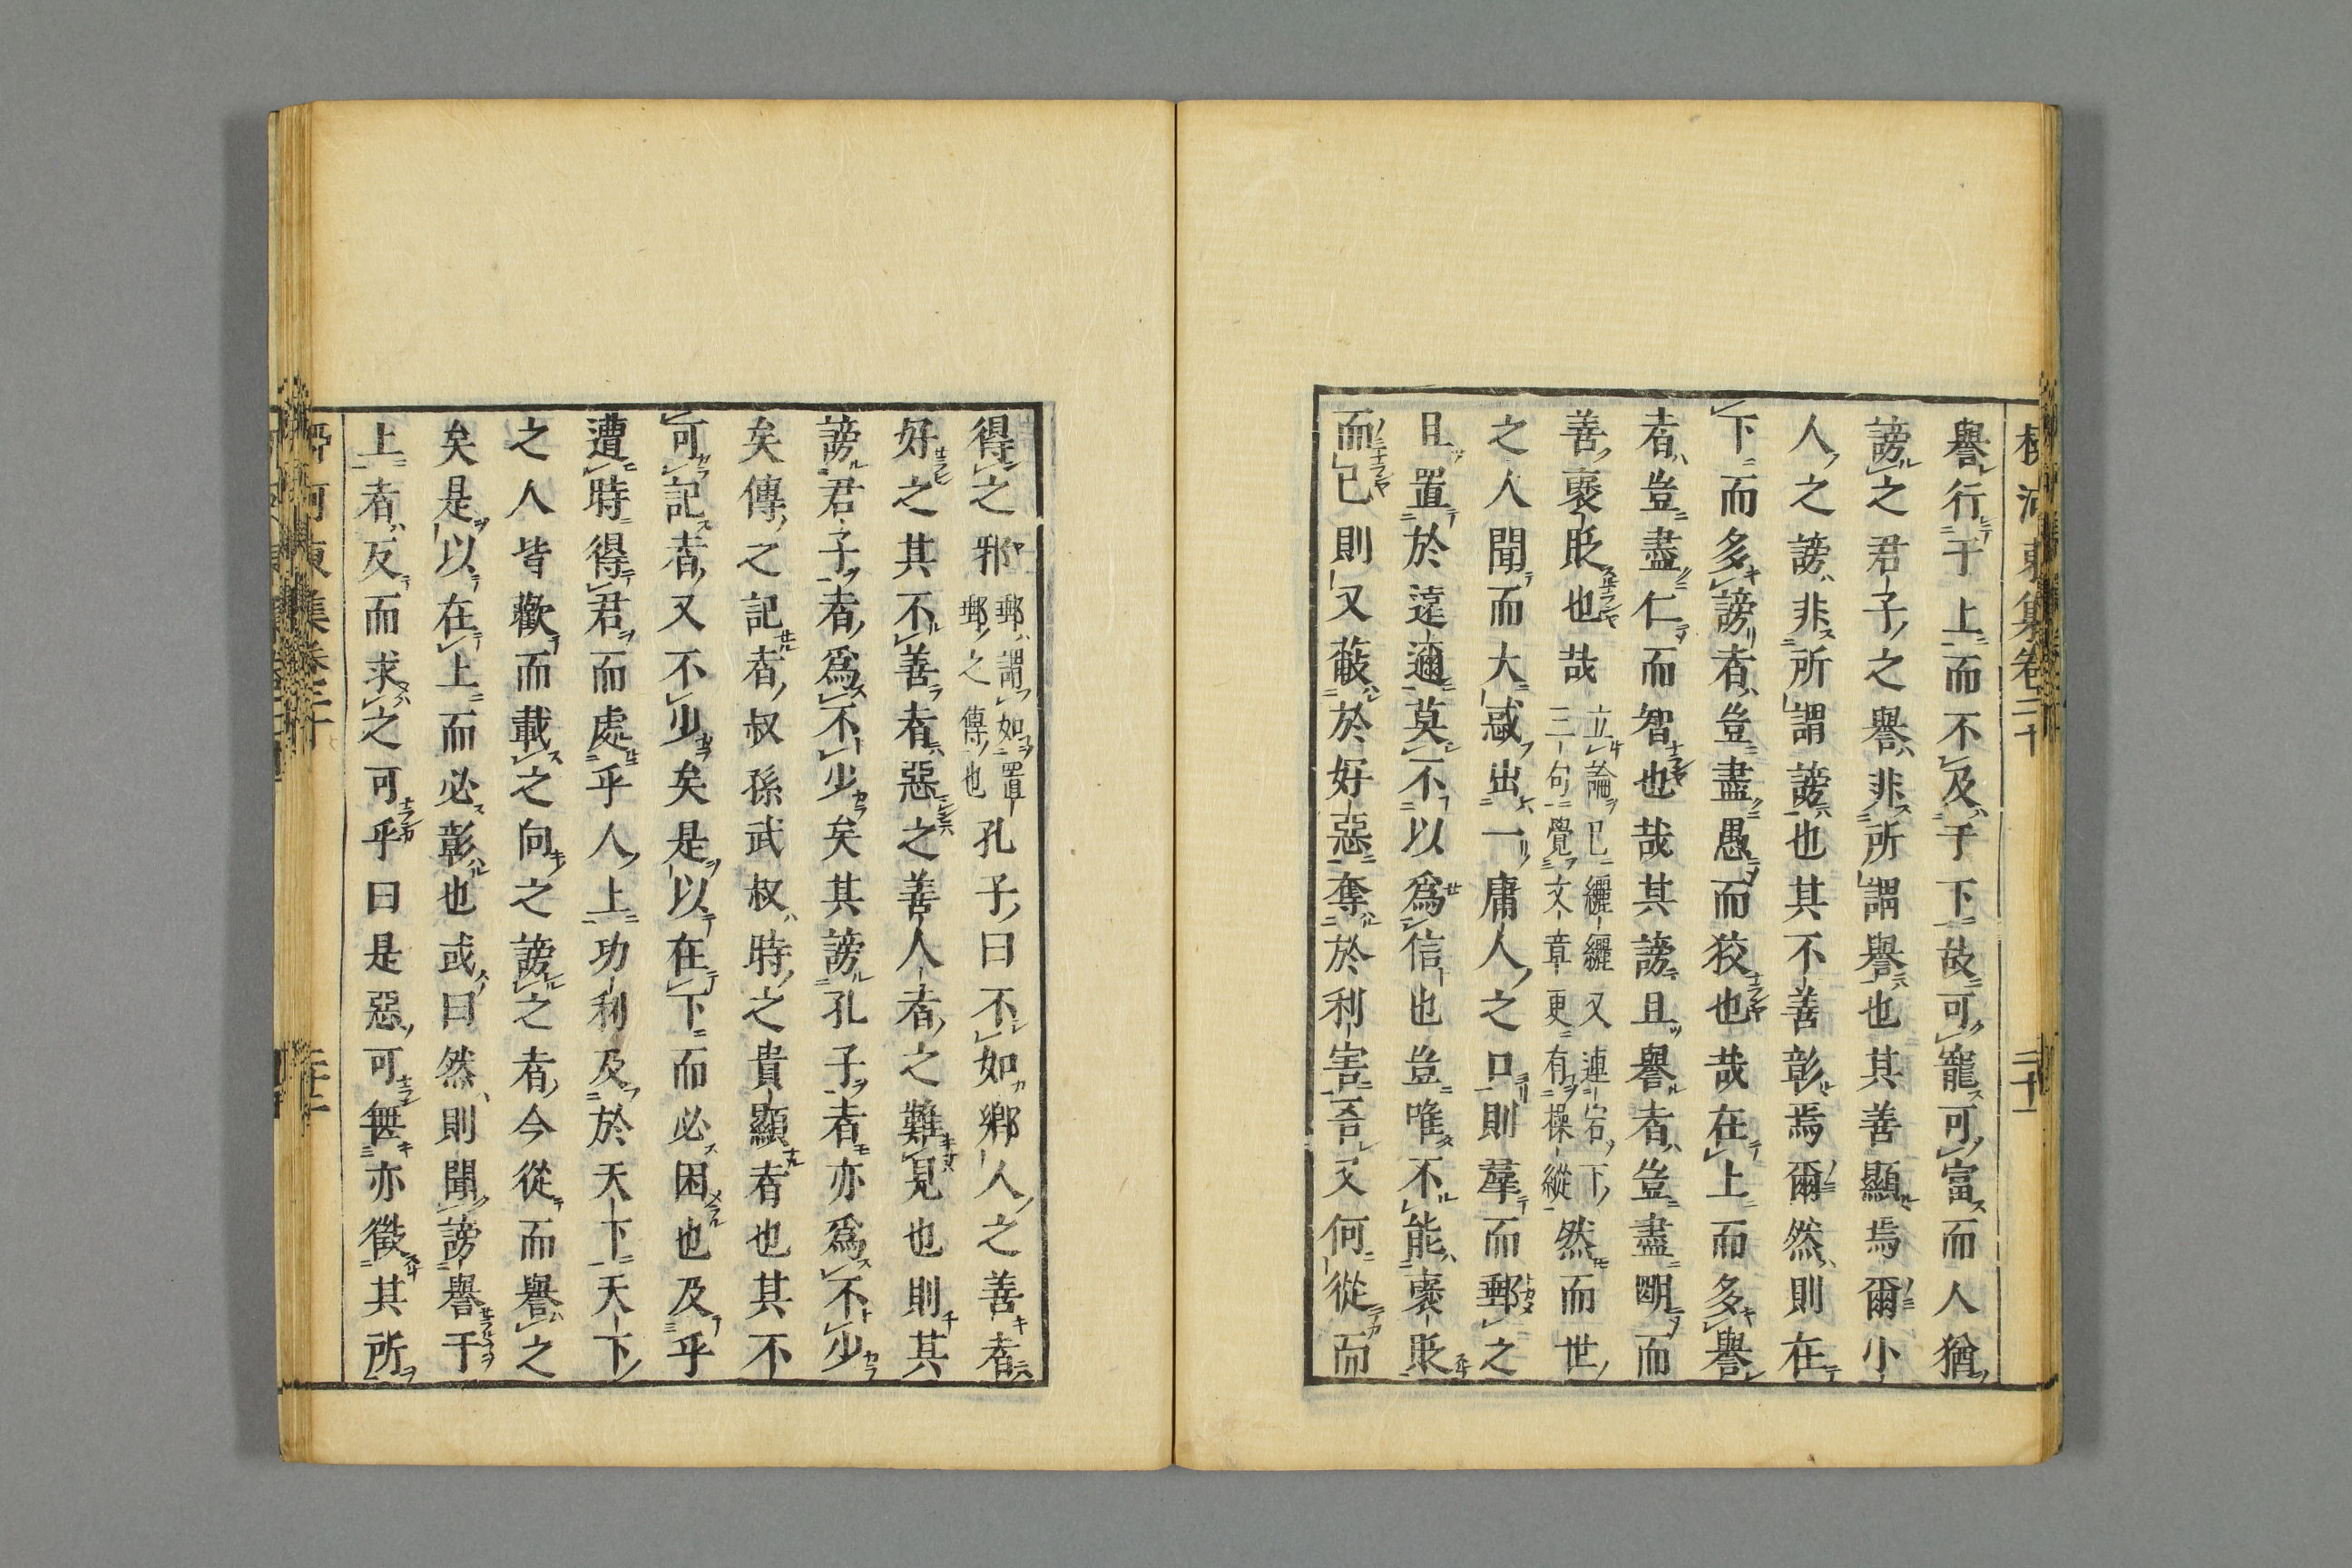 譽行于上而不及于下故可寵可富而人猶
謗之君子之譽非所謂譽也其善顯焉爾小
人之謗非所謂謗也其不善彰焉爾然則在
下而多謗者豈盡愚而狡也哉在上而多譽
者豈盡仁而智也哉其謗且譽者豈盡明而
善褒貶也哉立論已纚纚又連宕下三句覺文章更有操縱然而世
之人聞而大惑出一庸人之口則羣而郵之
且置於遠邇莫不以爲信也豈唯不能褒貶
而已則又蔽於好惡奪於利害吾又何從而
得之邪郵謂如置郵之傳也孔子曰不如鄉人之善者
好之其不善者惡之善人者之難見也則其
謗君子者爲不少矣其謗孔子者亦爲不少
矣傳之記者叔孫武叔時之貴顯者也其不
可記者又不少矣是以在下而必困也及乎
遭時得君而處乎人上功利及於天下天下
之人皆歡而載之向之謗之者今從而譽之
矣是以在上而必彰也或曰然則聞謗譽于
上者反而求之可乎曰是惡可無亦徵其所